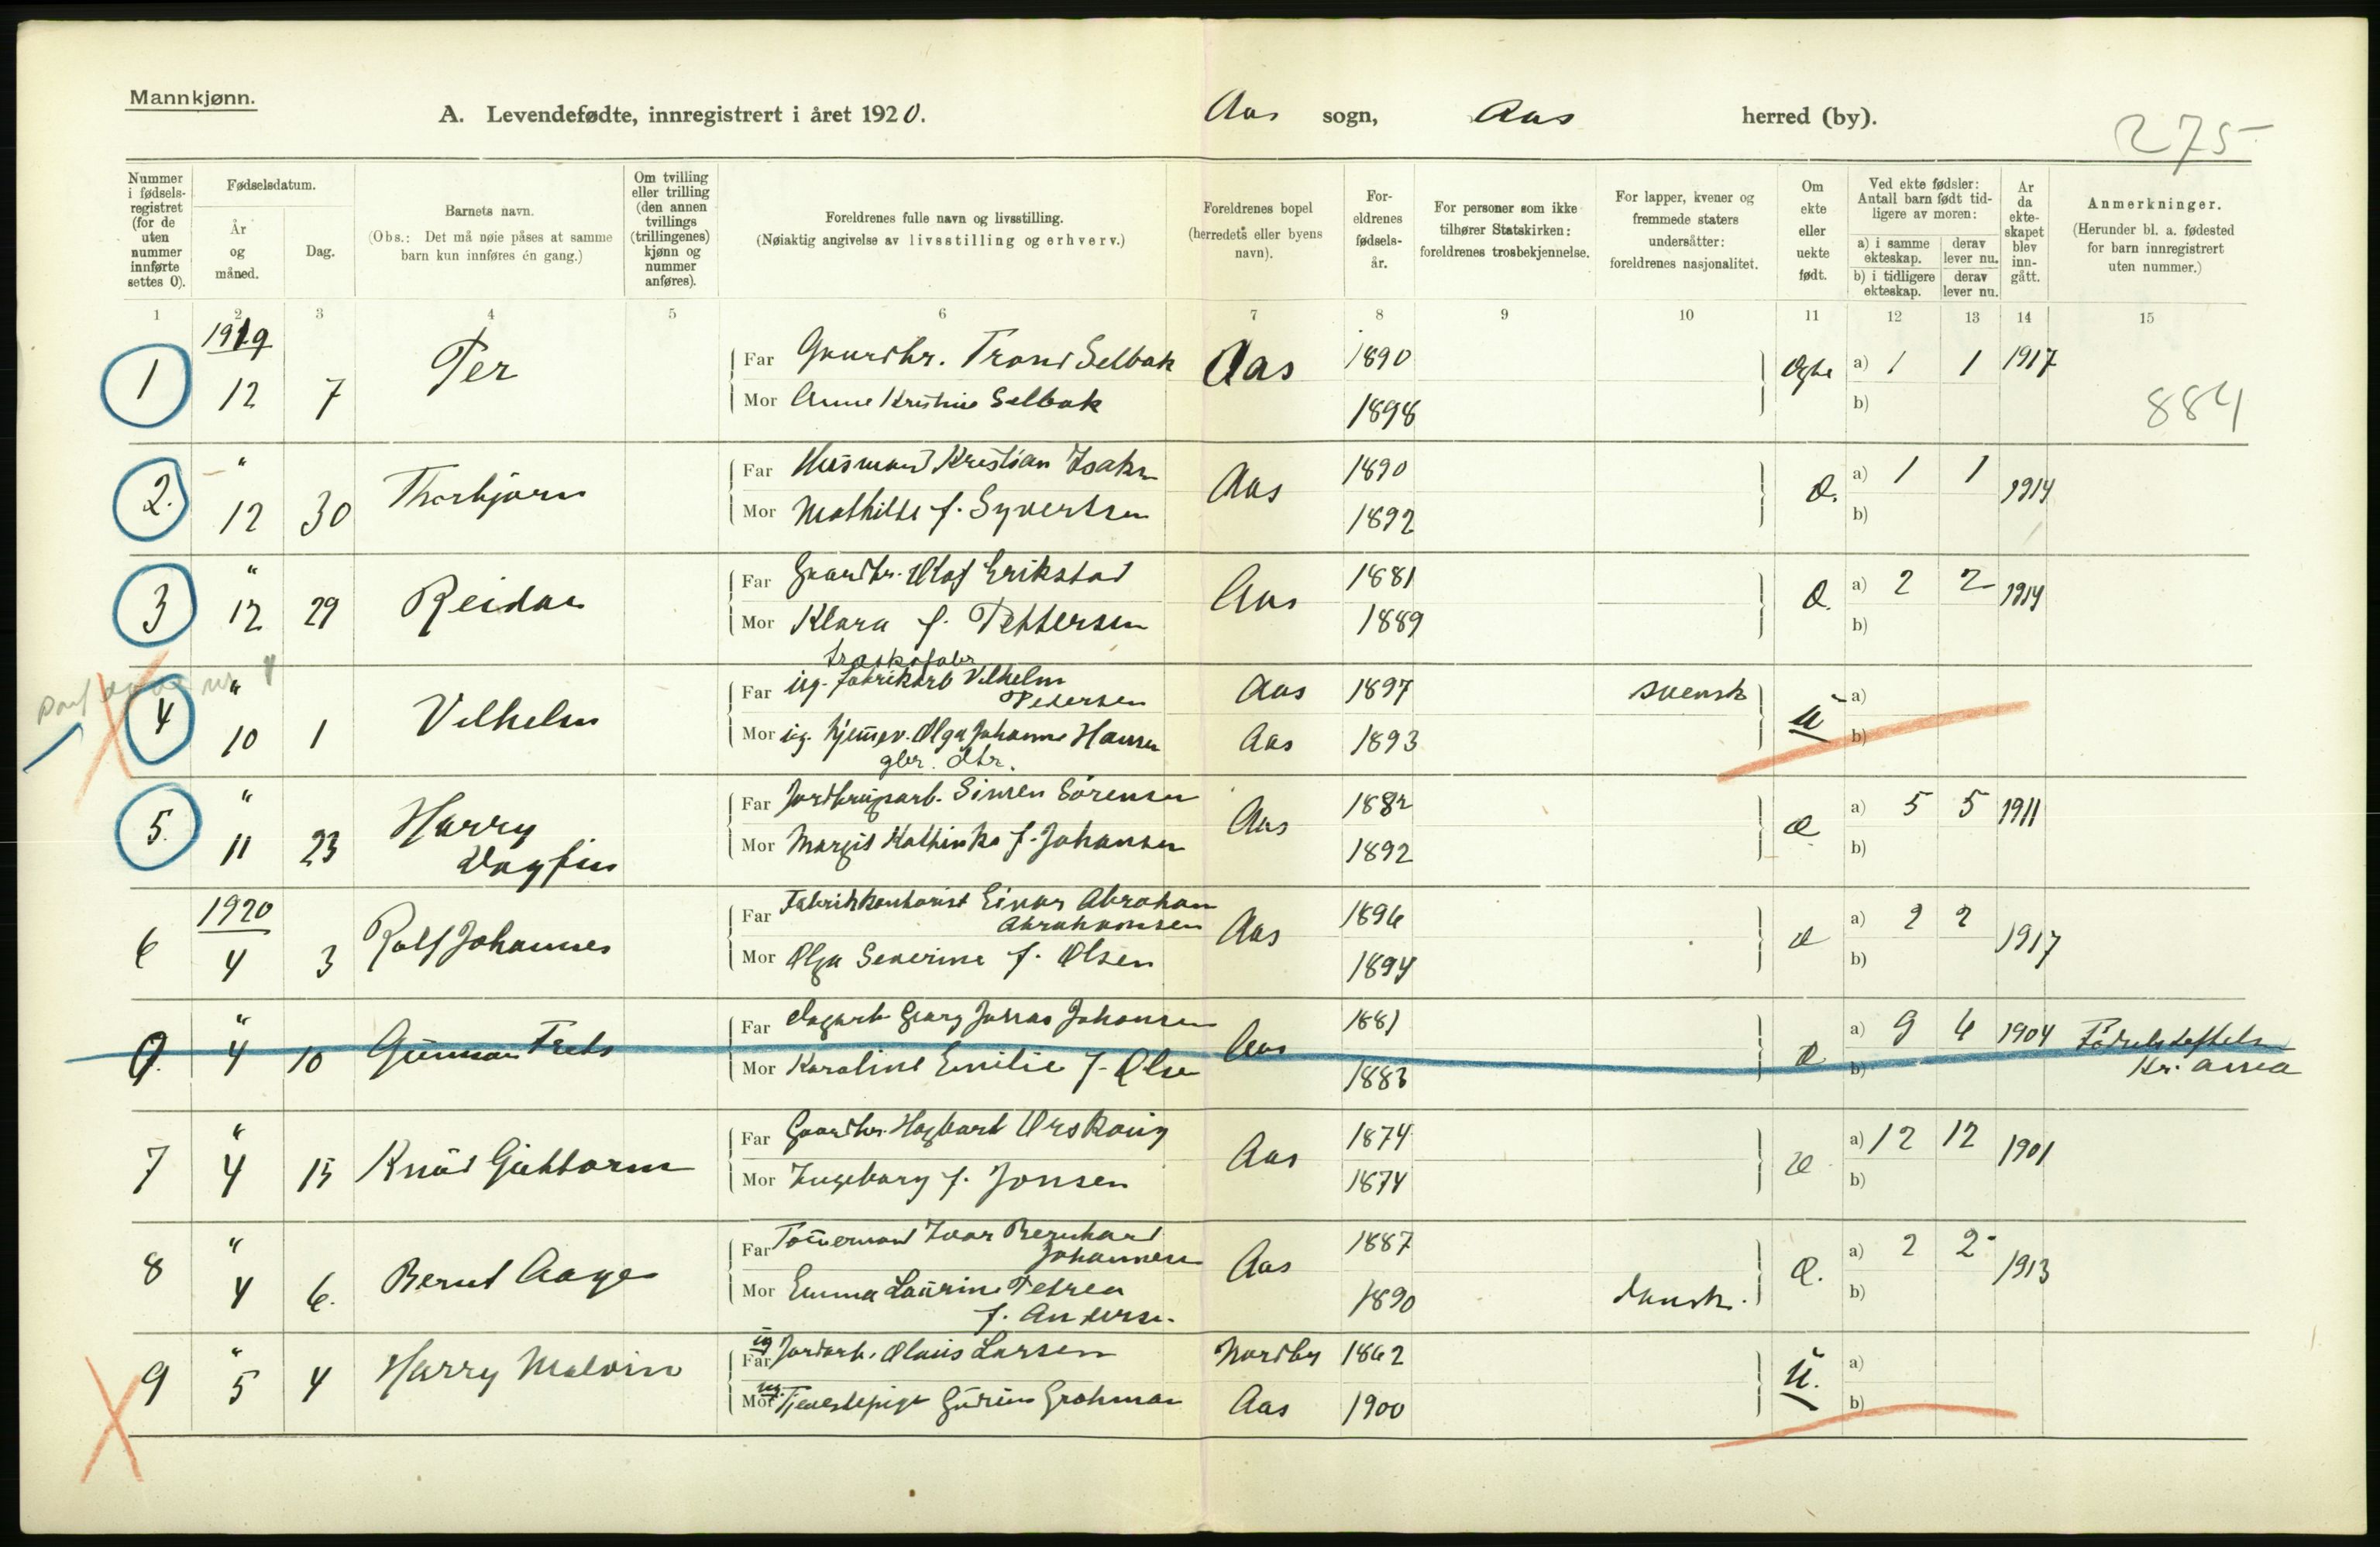 Mannkjønn.
A. Levendefødte, innregistrert i året 1920. Aas sogn, Aas herred (by).
275
Nummer i fødsels-registret (for de uten nummer innførte settes 0).
Fødselsdatum.
År og måned.
Dag.
Barnets navn.
(Obs.: Det må nøie påses at samme barn kun innføres én gang.)
Om tvilling eller trilling (den annen tvillings (trillingenes) kjønn og nummer anføres).
Foreldrenes fulle navn og livsstilling.
(Nøiaktig angivelse av livsstilling og erhverv.)
Foreldrenes bopel (herredets eller byens navn).
For-eldrenes fødsels-år.
For personer som ikke tilhører Statskirken: foreldrenes trosbekjennelse.
For lapper, kvener og fremmede staters undersåtter: foreldrenes nasjonalitet.
Om ekte eller uekte født.
Ved ekte fødsler: Antall barn født tid-ligere av moren:
a) i samme ekteskap. derav lever nu.
b) i tidligere ekteskap. derav lever nu.
År da ekte-skapet blev inn-gått.
Anmerkninger.
(Herunder bl. a. fødested for barn innregistrert uten nummer.)
1 2 3 4 5 6 7 8 9 10 11 12 13 14 15
1919
1 12 7 Per Far Gaardbr. Trond Selbak Aas 1890 Ægte a) 1 1 1917
Mor Anne Kristine Selbak 1898 b) 884
2. " 12 30 Thorbjørn Far Husmand Kristian Isaks Aas 1890 Æ. a) 1 1 1914
Mor Mathilde f. Syvertsen 1892 b)
3 " 12 29 Reidar Far Gaardbr. Olaf Erikstad Aas 1881 Æ. a) 2 2 1914
Mor Klara f. Pettersen 1889 b)
4 " 10 1 Vilhelm Far ug. fabrikarb Vilhelm Pedersen Aas 1897 svensk u a)
Mor ug. hjemmev. Olga Johanne Hansen Aas 1893 b)
gbr. dtr.
5. " 11 23 Harry Dagfin Far Jordbrugsarb. Simen Sørensen Aas 1882 Æ a) 5 5 1911
Mor Margit Kathinka f. Johansen 1892 b)
1920
6 4 3 Rolf Johannes Far Fabrikkontorist Einar Abraham Abrahamsen Aas 1896 Æ a) 2 2 1917
Mor Olga Severine f. Olsen 1894 b)
0. " 4 10 Gunnar Far Dagarb Georg Johansen Aas 1881 Æ a) 9 6 1904
Mor Karoline Emilie f. Olse 1883 b) Kr. ania
7 " 4 15 Knut Guttorm Far Gaardbr. Hagbart Orskaug Aas 1874 Æ a) 12 12 1901
Mor Ingeborg f. Jonsen 1874 b)
8 " 4 6. Bernt Aage Far Tømermand Ivar Bernhard Johannesen Aas 1887 Æ. a) 2 2 1913
Mor Emma Laurine Petrea f. Anderse. 1890 dansk. b)
9 " 5 4 Harry Malvin ug Far Jordarb. Olaus Larsen Nordby 1862 u. a)
Mor ug. Tjenestepige Gurine Grohman Aas 1900 b)